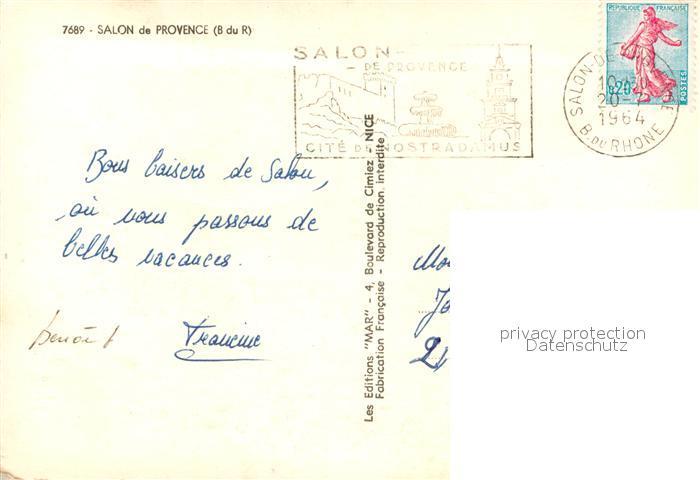 7689 - SALON de PROVENCE (B du R)
SALON-
- DE PROVENCE
CITÉ DE NOSTRADAMUS
REPUBLIQUE FRANÇAISE
0,20
POSTES
SALON-DE-
20-7
1964
B. DU RHONE
Bons baisers de Salon,
où nous passons de
belles vacances.
benoît
Francine
Les Editions "MAR" - 4, Boulevard de Cimiez - NICE
Fabrication Française - Reproduction Interdite
privacy protection
Datenschutz